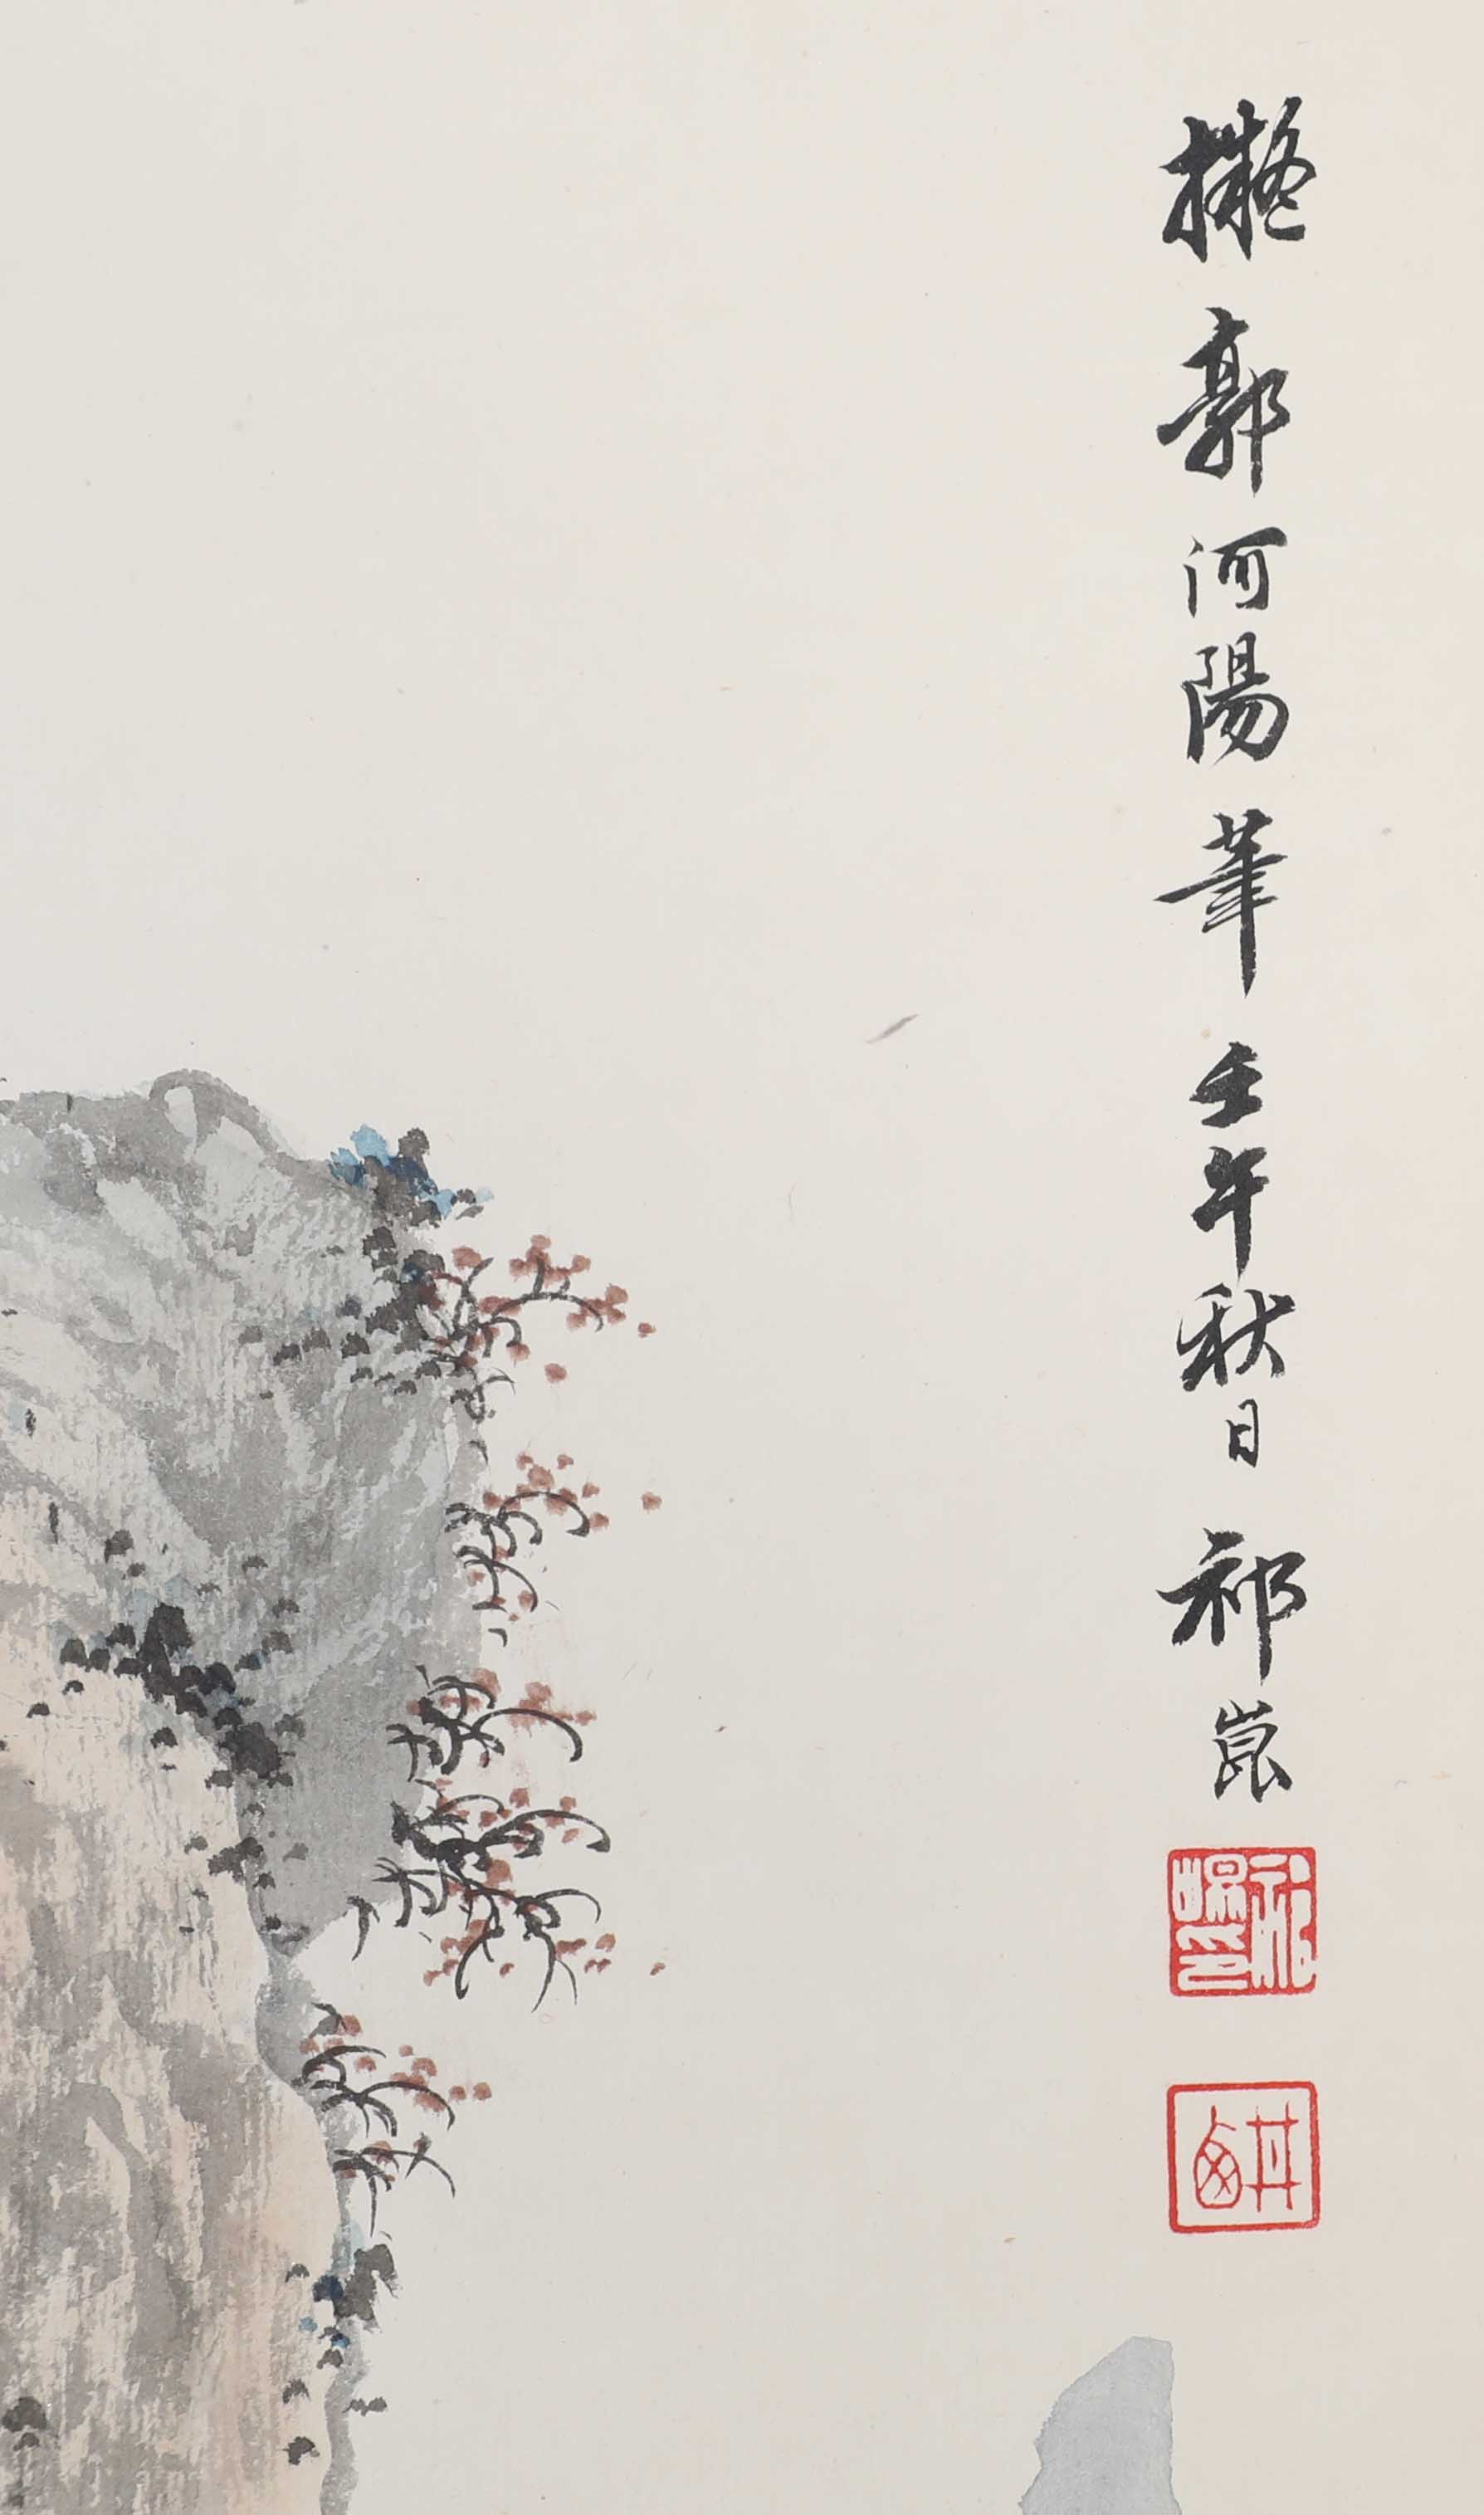 擬郭河陽筆壬午秋日祁崑
祁崑之印
井西